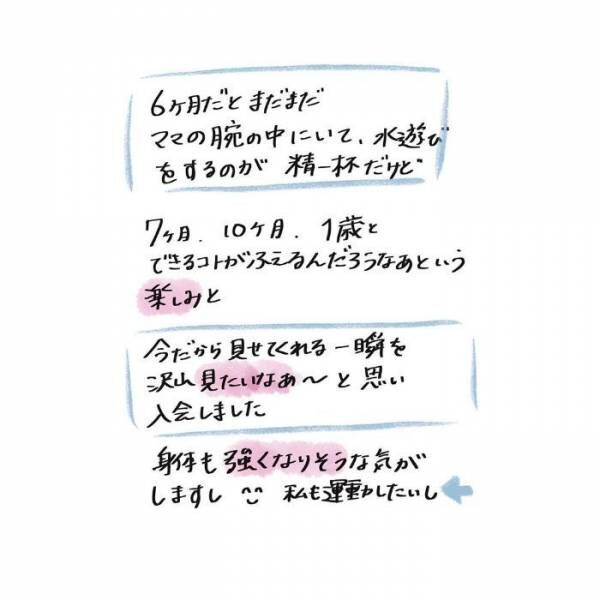 6ヶ月だとまだまだ
ママの腕の中にいて、水遊び
をするのが 精一杯だけど
7ヶ月、10ヶ月、1歳と
できるコトがふえるんだろうなあという
楽しみと
今だから見せてくれる一瞬を
沢山見たいなぁ〜と思い
入会しました
身体も強くなりそうな気が
しますし 私も運動したいし